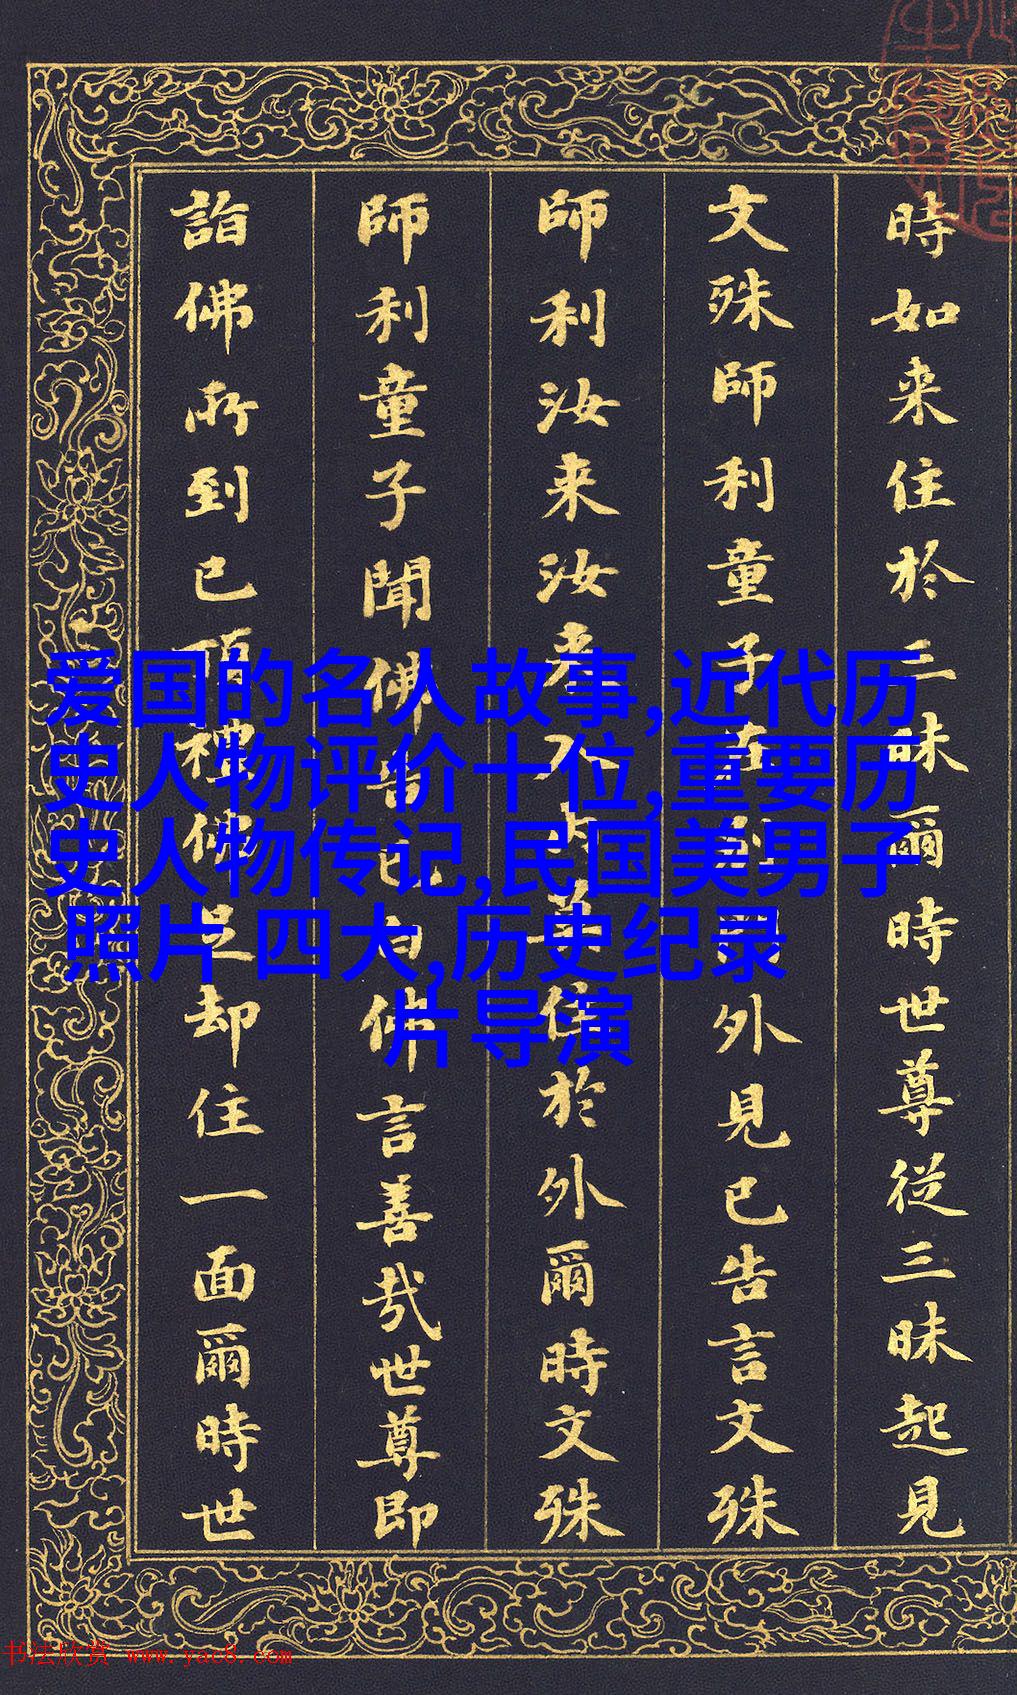 時如来住於三昧爾時世尊従三昧起見
文殊師利童子在外見已告言文殊
師利汝来汝者入內莫住於外爾時文殊
師利童子聞佛告已白佛言善哉世尊即
詣佛所到已頂禮佛足却住一面爾時世
爱国的名人故事,近代历
史人物评价十位,重要历
史人物传记,民国美男子
照片 四大,历史纪录
片导演
书法欣赏 www.yac8.com